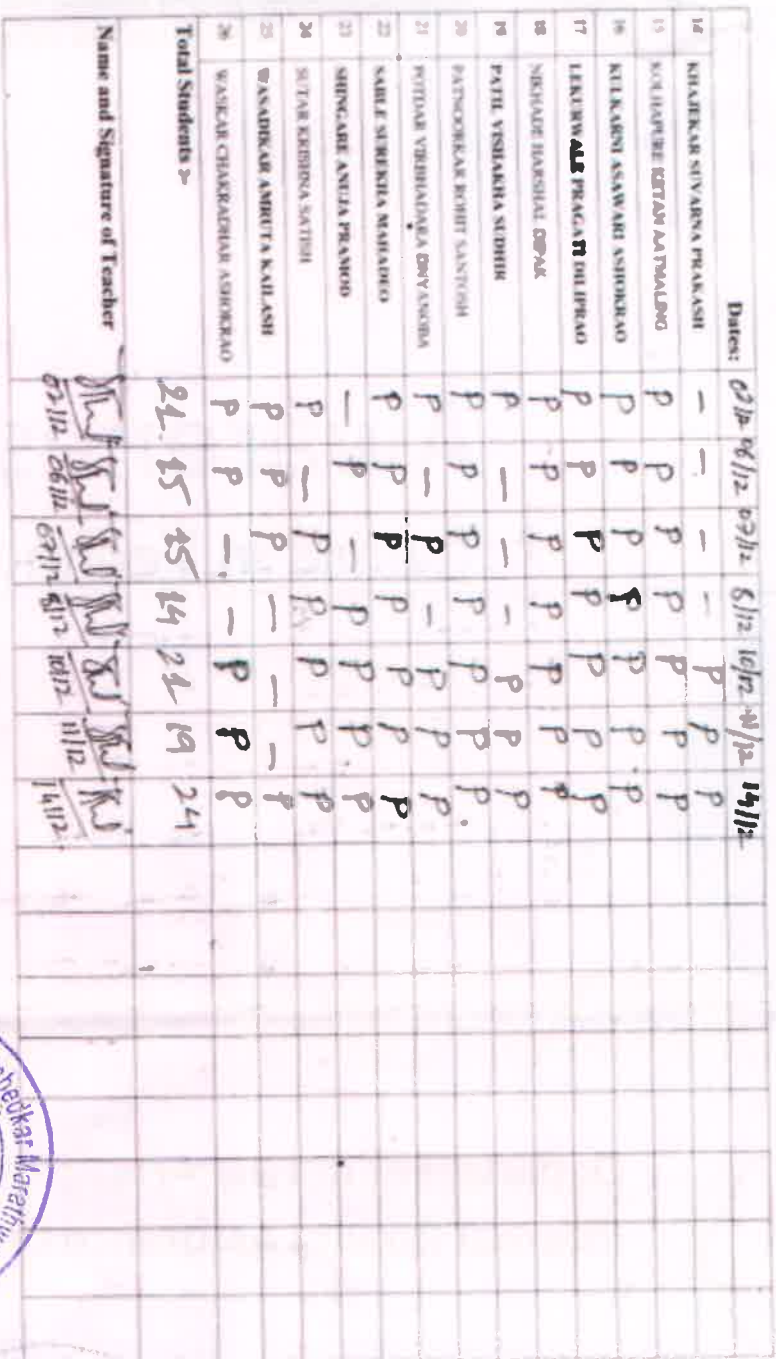 Dates: 02/12 06/12 07/12 8/12 10/12 11/12 14/12
14 KHAJEKAR SUVARNA PRAKASH - - - - P P P
15 KOLHAPURE KETAN AATMALING P P P P P P P
16 KULKARNI ASAWARI ASHOKRAO P P P P P P P
17 LEKURWALE PRAGATI DILIPRAO P P P P P P P
18 NIKHADE HARSHAL DIPAK P P P P P P P
19 PATIL VISHAKHA SUDHIR P - - - P P P
20 PATNOORKAR ROHIT SANTOSH P P P P P P P
21 POTDAR VIRBHADARA DNYANOBA P - P - P P P
22 SABLE SUREKHA MAHADEO P P P P P P P
23 SHINGARE ANUJA PRAMOD - P - P P P P
24 SUTAR KRISHNA SATISH P - P P P P P
25 WASADIKAR AMRUTA KAILASH P P P - - - P
26 WASKAR CHAKRADHAR ASHOKRAO P P - - P P P
Total Students :- 21 15 15 14 21 19 24
Name and Signature of Teacher
02/12 06/12 07/12 8/12 10/12 11/12 14/12
bedkar Marathw